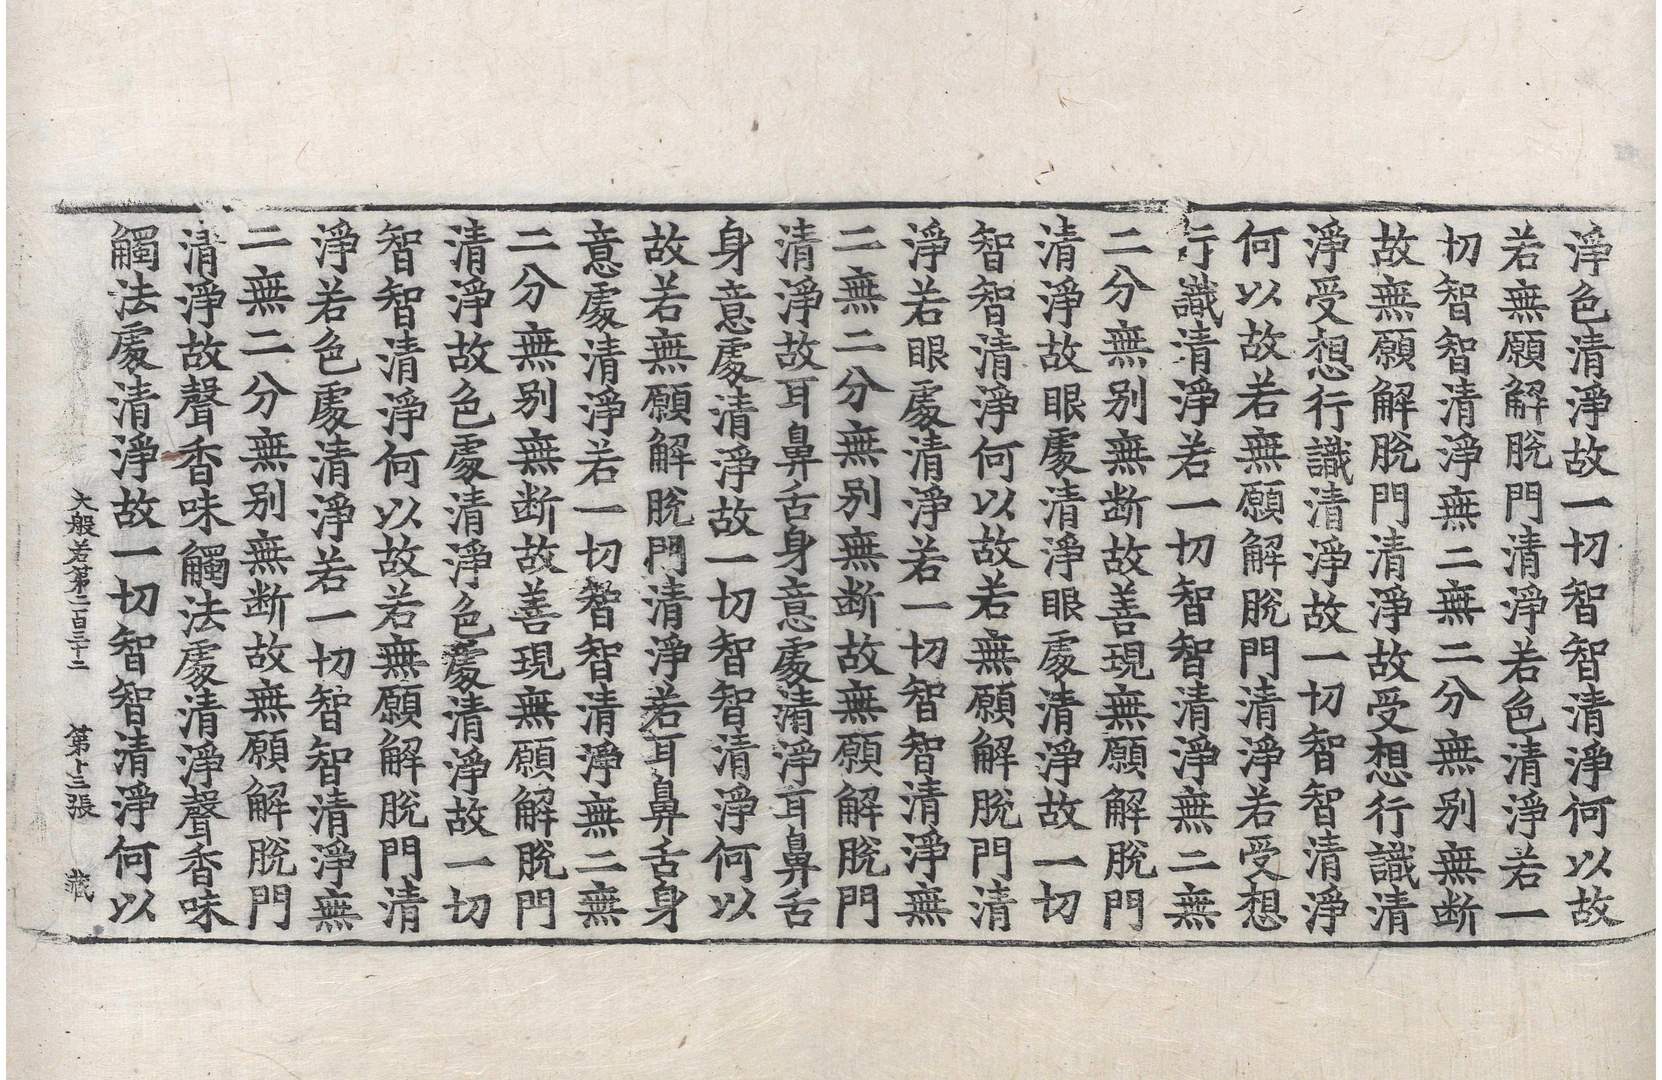 淨色清淨故一切智智清淨何以故
若無願解脫門清淨若色清淨若一
切智智清淨無二無二分無別無斷
故無願解脫門清淨故受想行識清
淨受想行識清淨故一切智智清淨
何以故若無願解脫門清淨若受想
行識清淨若一切智智清淨無二無
二分無別無斷故善現無願解脫門
清淨故眼處清淨眼處清淨故一切
智智清淨何以故若無願解脫門清
淨若眼處清淨若一切智智清淨無
二無二分無別無斷故無願解脫門
清淨故耳鼻舌身意處清淨耳鼻舌
身意處清淨故一切智智清淨何以
故若無願解脫門清淨若耳鼻舌身
意處清淨若一切智智清淨無二無
二分無別無斷故善現無願解脫門
清淨故色處清淨色處清淨故一切
智智清淨何以故若無願解脫門清
淨若色處清淨若一切智智清淨無
二無二分無別無斷故無願解脫門
清淨故聲香味觸法處清淨聲香味
觸法處清淨故一切智智清淨何以
大般若第二百三十二 第十三張 藏